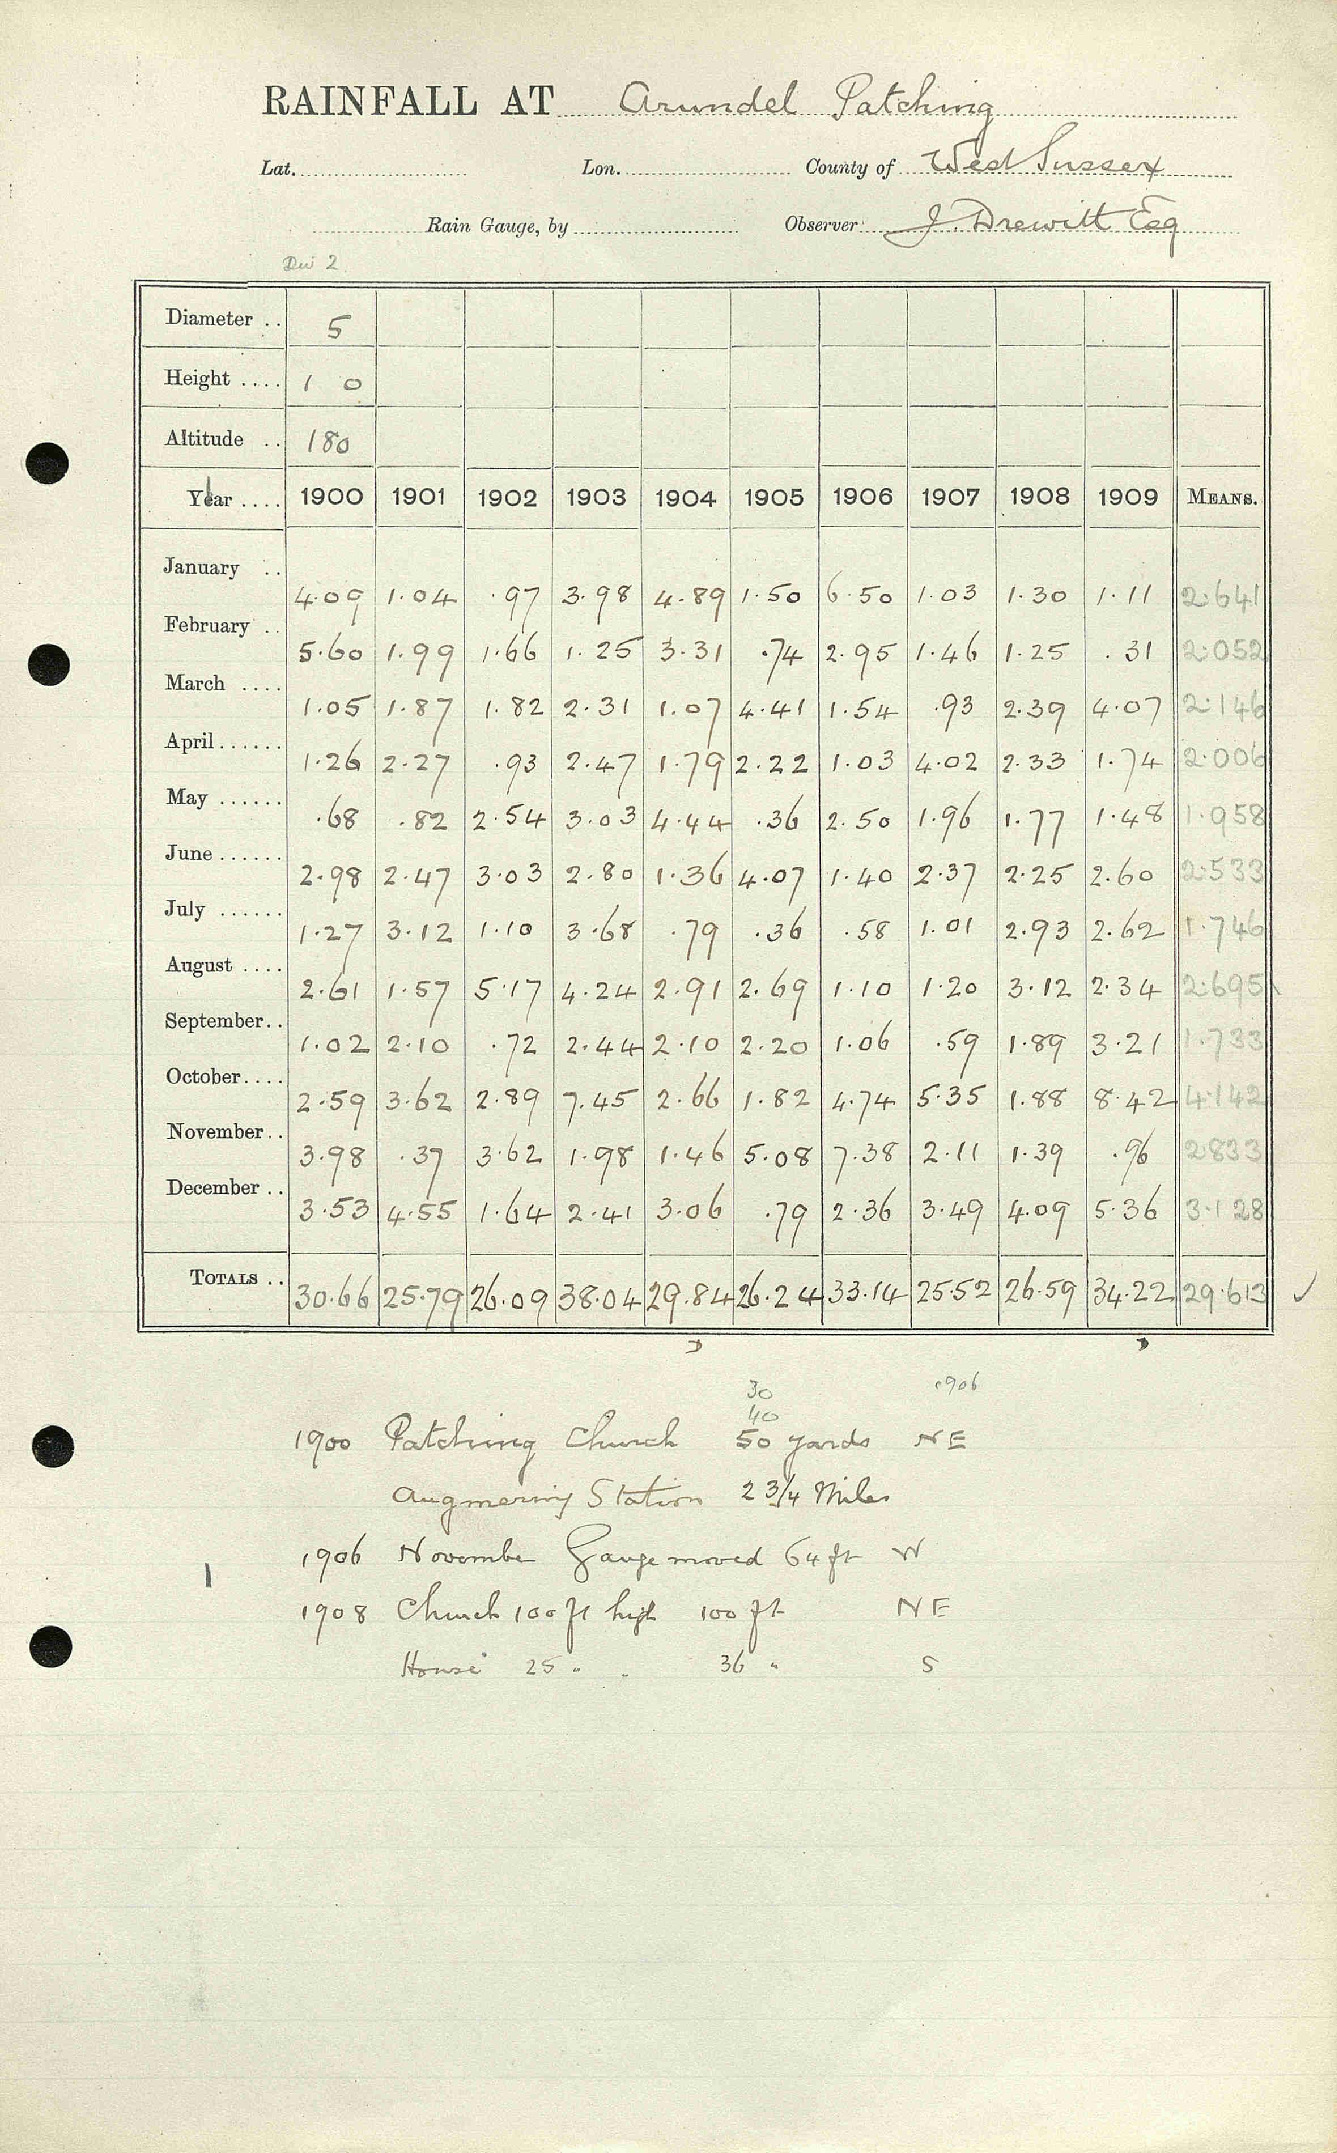 RAINFALL AT Arundel Patching
Lat. Lon. County of West Sussex
Rain Gauge, by Observer J. Drewitt Esq
Div 2
Diameter .. 5
Height .... 1 0
Altitude .. 180
Year .... 1900 1901 1902 1903 1904 1905 1906 1907 1908 1909 MEANS.
January .. 4.09 1.04 .97 3.98 4.89 1.50 6.50 1.03 1.30 1.11 2.641
February .. 5.60 1.99 1.66 1.25 3.31 .74 2.95 1.46 1.25 .31 2.052
March .... 1.05 1.87 1.82 2.31 1.07 4.41 1.54 .93 2.39 4.07 2.146
April...... 1.26 2.27 .93 2.47 1.79 2.22 1.03 4.02 2.33 1.74 2.006
May ...... .68 .82 2.54 3.03 4.44 .36 2.50 1.96 1.77 1.48 1.958
June ...... 2.98 2.47 3.03 2.80 1.36 4.07 1.40 2.37 2.25 2.60 2.533
July ...... 1.27 3.12 1.10 3.68 .79 .36 .58 1.01 2.93 2.62 1.746
August .... 2.61 1.57 5.17 4.24 2.91 2.69 1.10 1.20 3.12 2.34 2.695
September.. 1.02 2.10 .72 2.44 2.10 2.20 1.06 .59 1.89 3.21 1.733
October.... 2.59 3.62 2.89 7.45 2.66 1.82 4.74 5.35 1.88 8.42 4.142
November.. 3.98 .37 3.62 1.98 1.46 5.08 7.38 2.11 1.39 .96 2833
December .. 3.53 4.55 1.64 2.41 3.06 .79 2.36 3.49 4.09 5.36 3.128
TOTALS .. 30.66 25.79 26.09 38.04 29.84 26.24 33.14 25.52 26.59 34.22 29.613 ✓
30 1906
40
1900 Patching Church 50 yards NE
Augmering Station 2 3/4 Miles
1906 November Gauge moved 64 ft W
1908 Church 100 ft high 100 ft NE
House 25 " " 36 " S